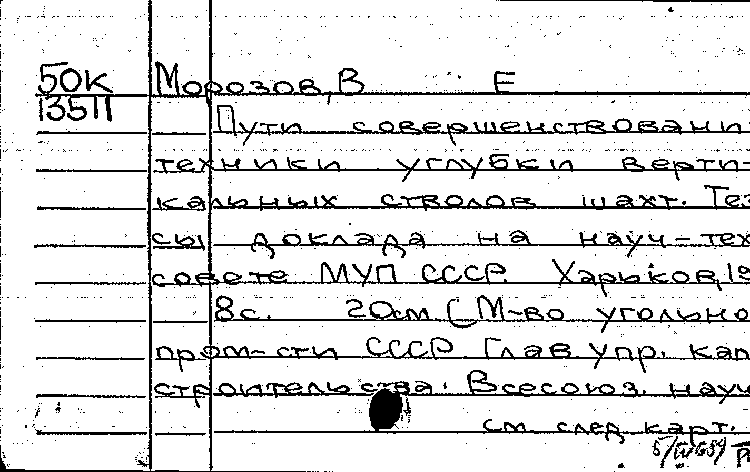 50К Морозов, В Е
13511
Пути совершенствовани
техники углубки верти-
кальных стволов шахт. Тез
сы доклада на науч-тех
совете МУП СССР. Харьков, 19
8с. 20см (М-во угольно
пром-сти СССР Глав упр. кап
строительства. Всесоюз. науч
см. след. карт.